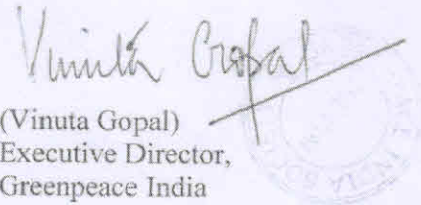 Vinuta Gopal
(Vinuta Gopal)
Executive Director,
Greenpeace India